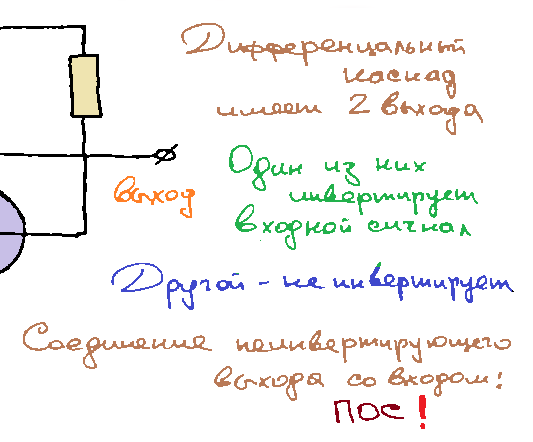 Дифференциальный
каскад
имеет 2 выхода
Один из них
инвертирует
входной сигнал
выход
Другой - не инвертирует
Соединение неинвертирующего
выхода со входом:
ПОС!